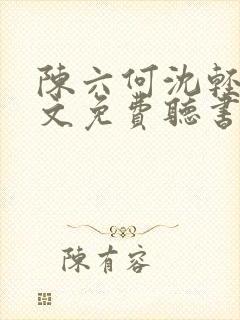 陳六何沈輕
文免費聽書
陳有容